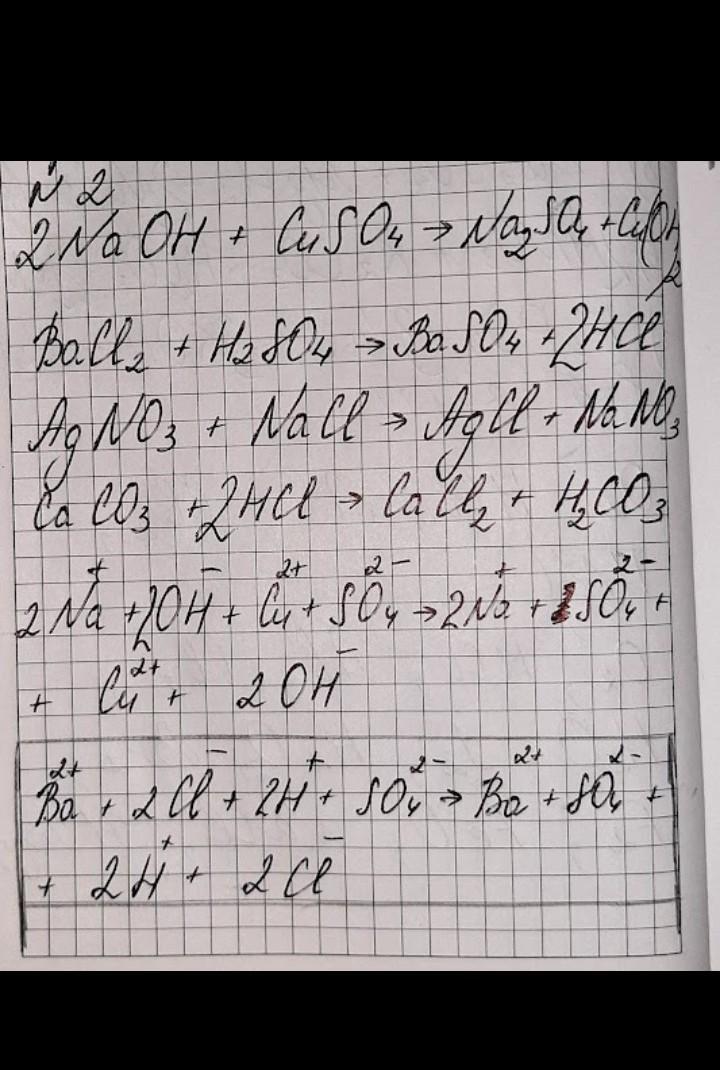 N 2
2NaOH + CuSO₄ → Na₂SO₄ + Cu(OH)₂
BaCl₂ + H₂SO₄ → BaSO₄ + 2HCl
AgNO₃ + NaCl → AgCl + NaNO₃
CaCO₃ + 2HCl → CaCl₂ + H₂CO₃
2Na⁺ + 2OH⁻ + Cu²⁺ + SO₄²⁻ → 2Na⁺ + SO₄²⁻ +
+ Cu²⁺ + 2OH⁻
Ba²⁺ + 2Cl⁻ + 2H⁺ + SO₄²⁻ → Ba²⁺ + SO₄²⁻ +
+ 2H⁺ + 2Cl⁻